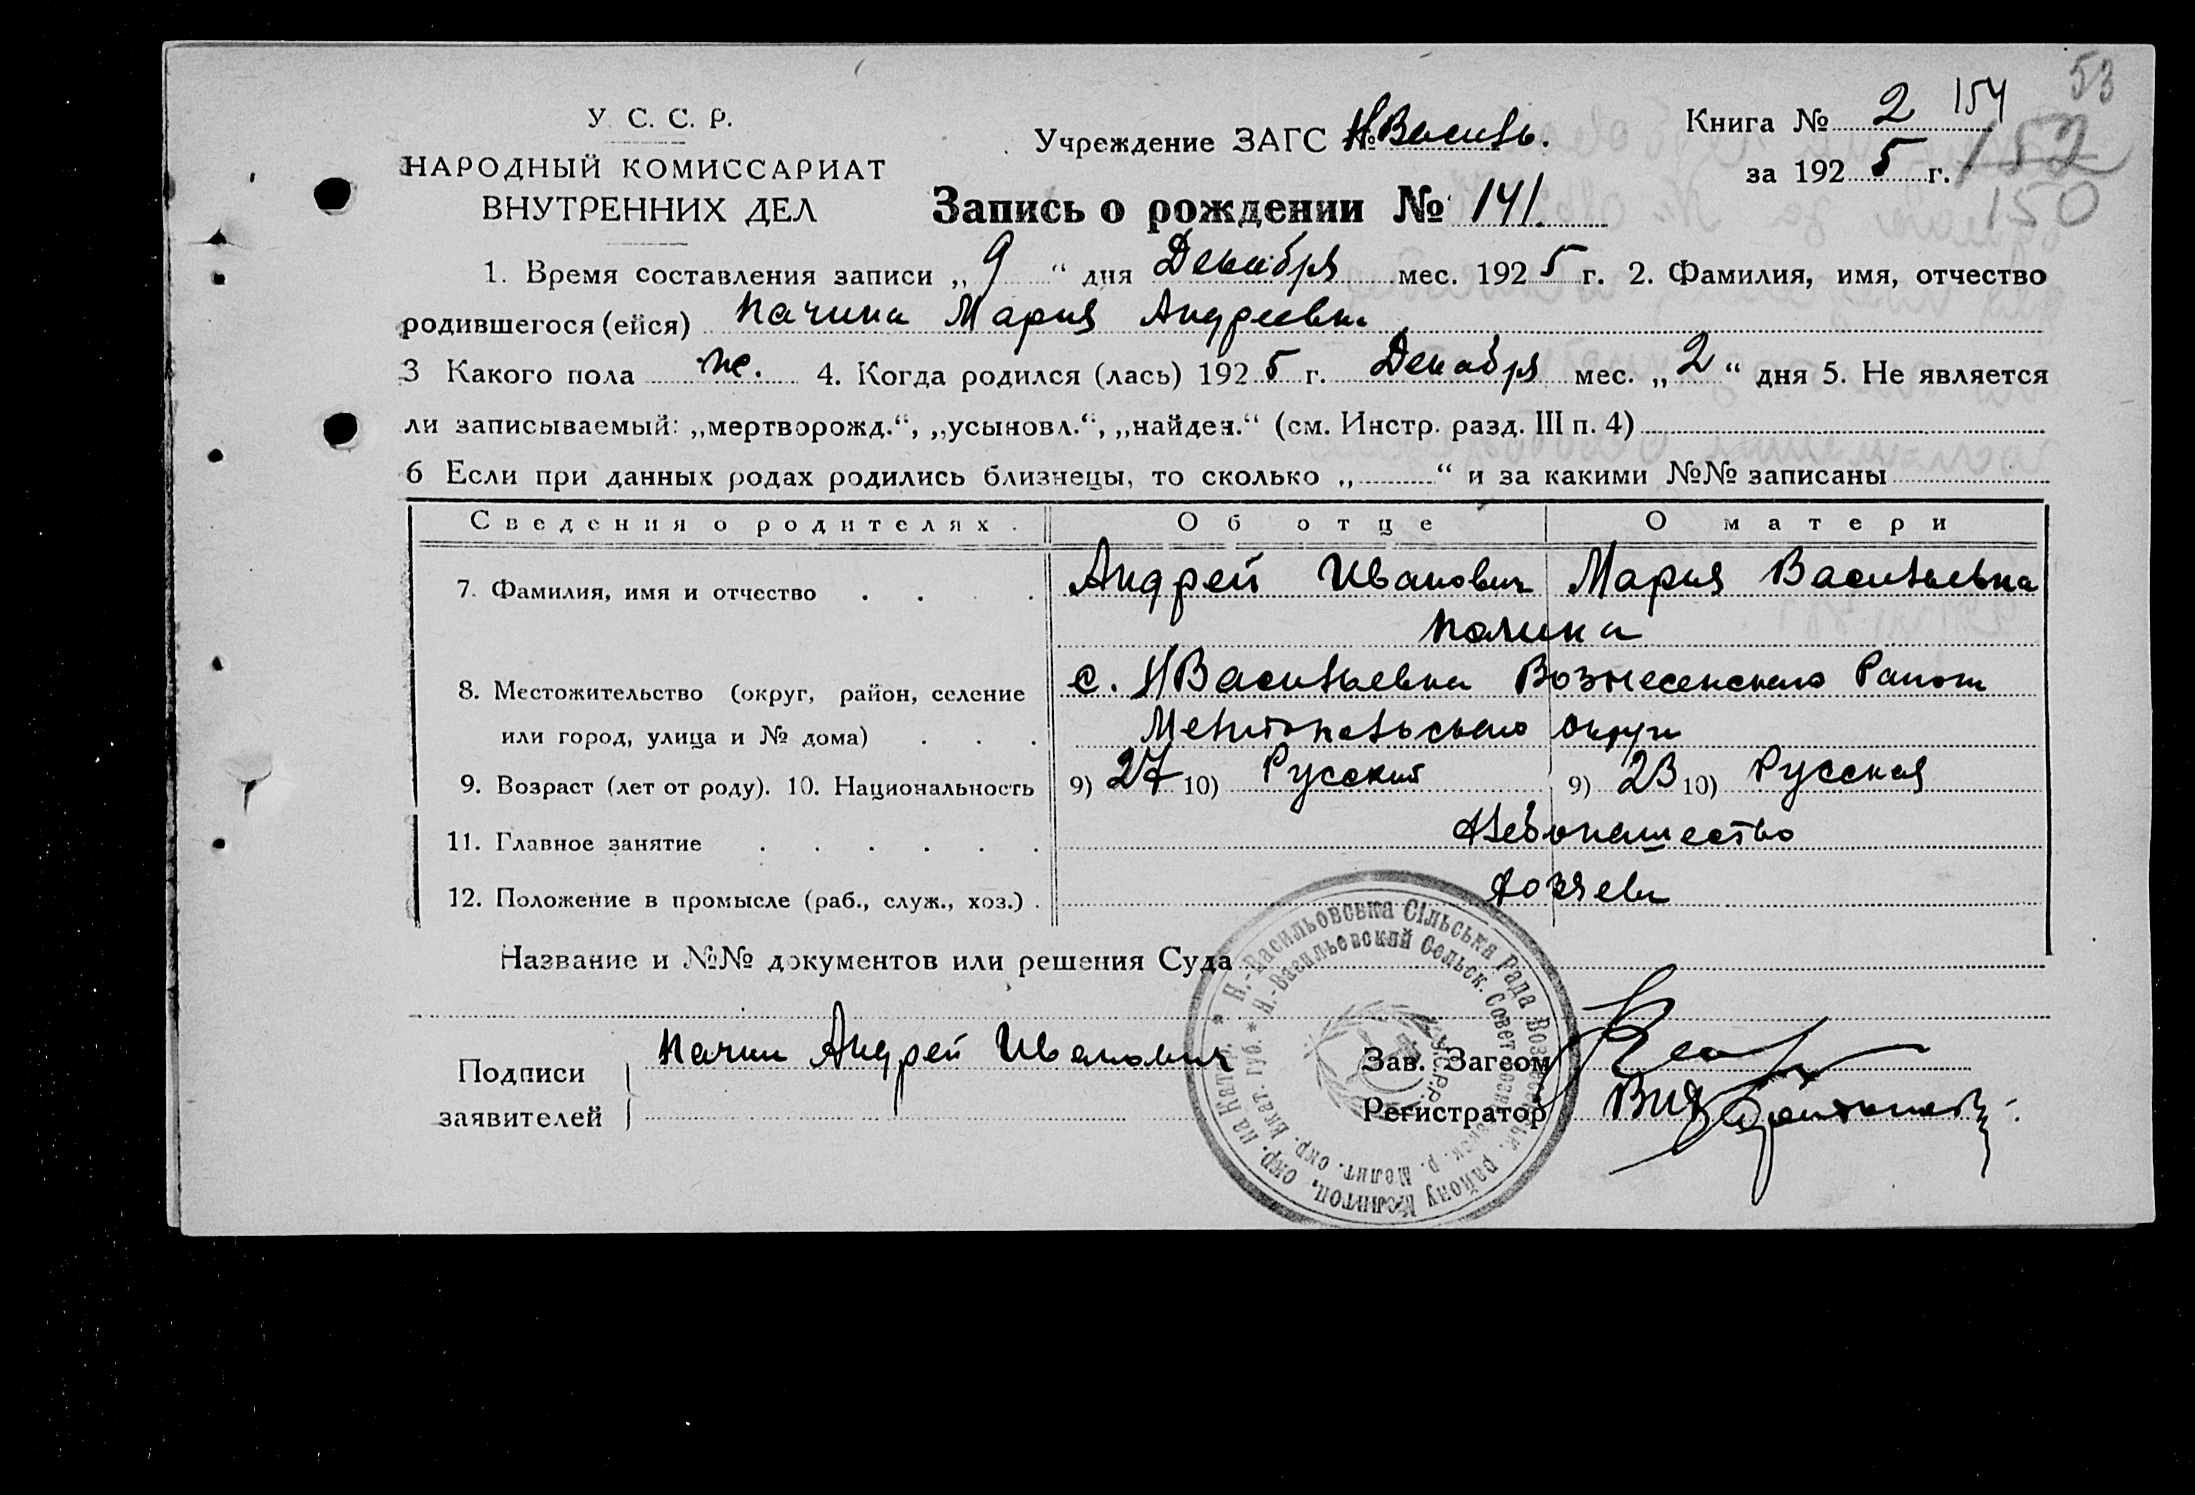 53
У. С. С. Р.
НАРОДНЫЙ КОМИССАРИАТ
ВНУТРЕННИХ ДЕЛ
Учреждение ЗАГС № НВасиль.
Книга № 2 154
за 1925 г. 152
150
Запись о рождении № 141.
1. Время составления записи „9“ дня Декабря мес. 1925 г. 2. Фамилия, имя, отчество
родившегося (ейся) Качина Мария Андреевна
3 Какого пола ж. 4. Когда родился (лась) 1925 г. Декабря мес. „2“ дня 5. Не является
ли записываемый: „мертворожд.“, „усыновл.“, „найден.“ (см. Инстр. разд. III п. 4)
6 Если при данных родах родились близнецы, то сколько „ “ и за какими №№ записаны
Сведения о родителях. Об отце О матери
7. Фамилия, имя и отчество Андрей Иванович Мария Васильевна
Качина
8. Местожительство (округ, район, селение с. НВасильевка Вознесенского Района
или город, улица и № дома) Мелитопольского округа
9. Возраст (лет от роду). 10. Национальность 9) 27 10) Русский 9) 23 10) Русская
11. Главное занятие Хлебопашество
12. Положение в промысле (раб., служ., хоз.) Хозяева
Название и №№ документов или решения Суда
Подписи заявителей Качин Андрей Иванович
Зав. Загсом
Регистратор
Н.-Васильовська Сільська Рада Вознесенськ. району Мелітоп. окр. на Катер.
Н.-Васильевский Сельск. Совет Вознесенск. р. Мелит. окр. Екат. губ.
У.С.Р.Р.